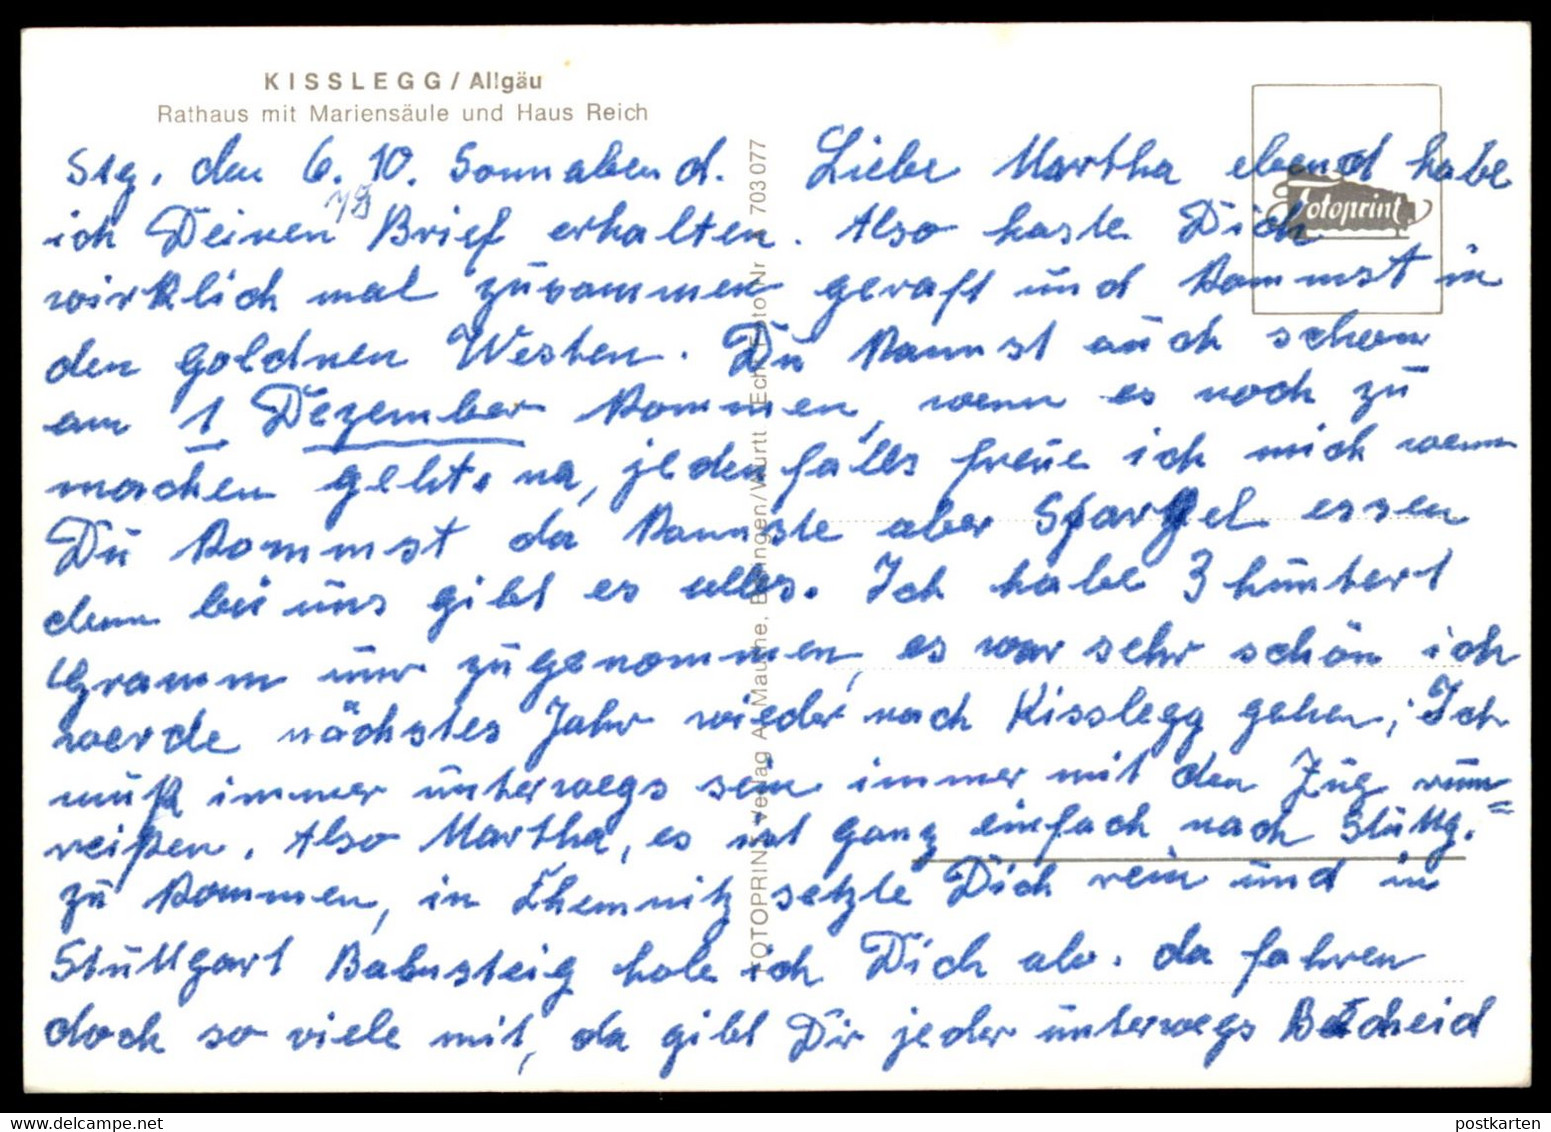 KISSLEGG / Allgäu
Rathaus mit Mariensäule und Haus Reich
Stg, den 6. 10. Sonnabend. Liebe Martha ebend habe
ich Deinen Brief erhalten. Also haste Dich
wirklich mal zusammen geraft und kommst in
den goldnen Westen. Du kannst auch schon
am 1 Dezember kommen, wenn es noch zu
machen geht. na, jedenfalls freue ich mich wenn
Du kommst da kannste aber Spargel essen
denn bei uns gibt es alles. Ich habe 3 huntert
Gramm nur zugenommen, es war sehr schön ich
werde nächstes Jahr wieder nach Kisslegg gehen, Ich
muß immer unterwegs sein immer mit den Zug rum=
reißen. Also Martha, es ist ganz einfach nach Stuttg.
zu kommen, in Chemnitz setzte Dich rein und in
Stuttgart Bahnsteig hole ich Dich ab. da fahren
doch so viele mit, da gibt Dir jeder unterwegs Bescheid
FOTOPRINT-Verlag A. Mauthe, Balingen/Württ Echt Foto Nr 703 077
Fotoprint
postkarten